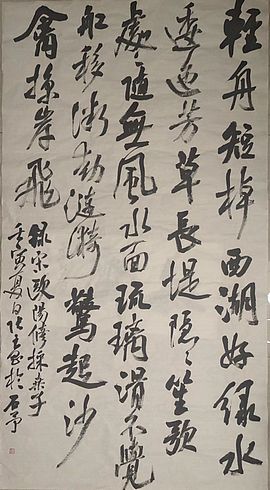 輕舟短棹西湖好綠水
逶迤芳草長堤隱〻笙歌
處〻隨無風水面琉璃滑不覺
船移微動漣漪驚起沙
禽掠岸飛
錄宋歐陽修採桑子
壬寅夏日於石